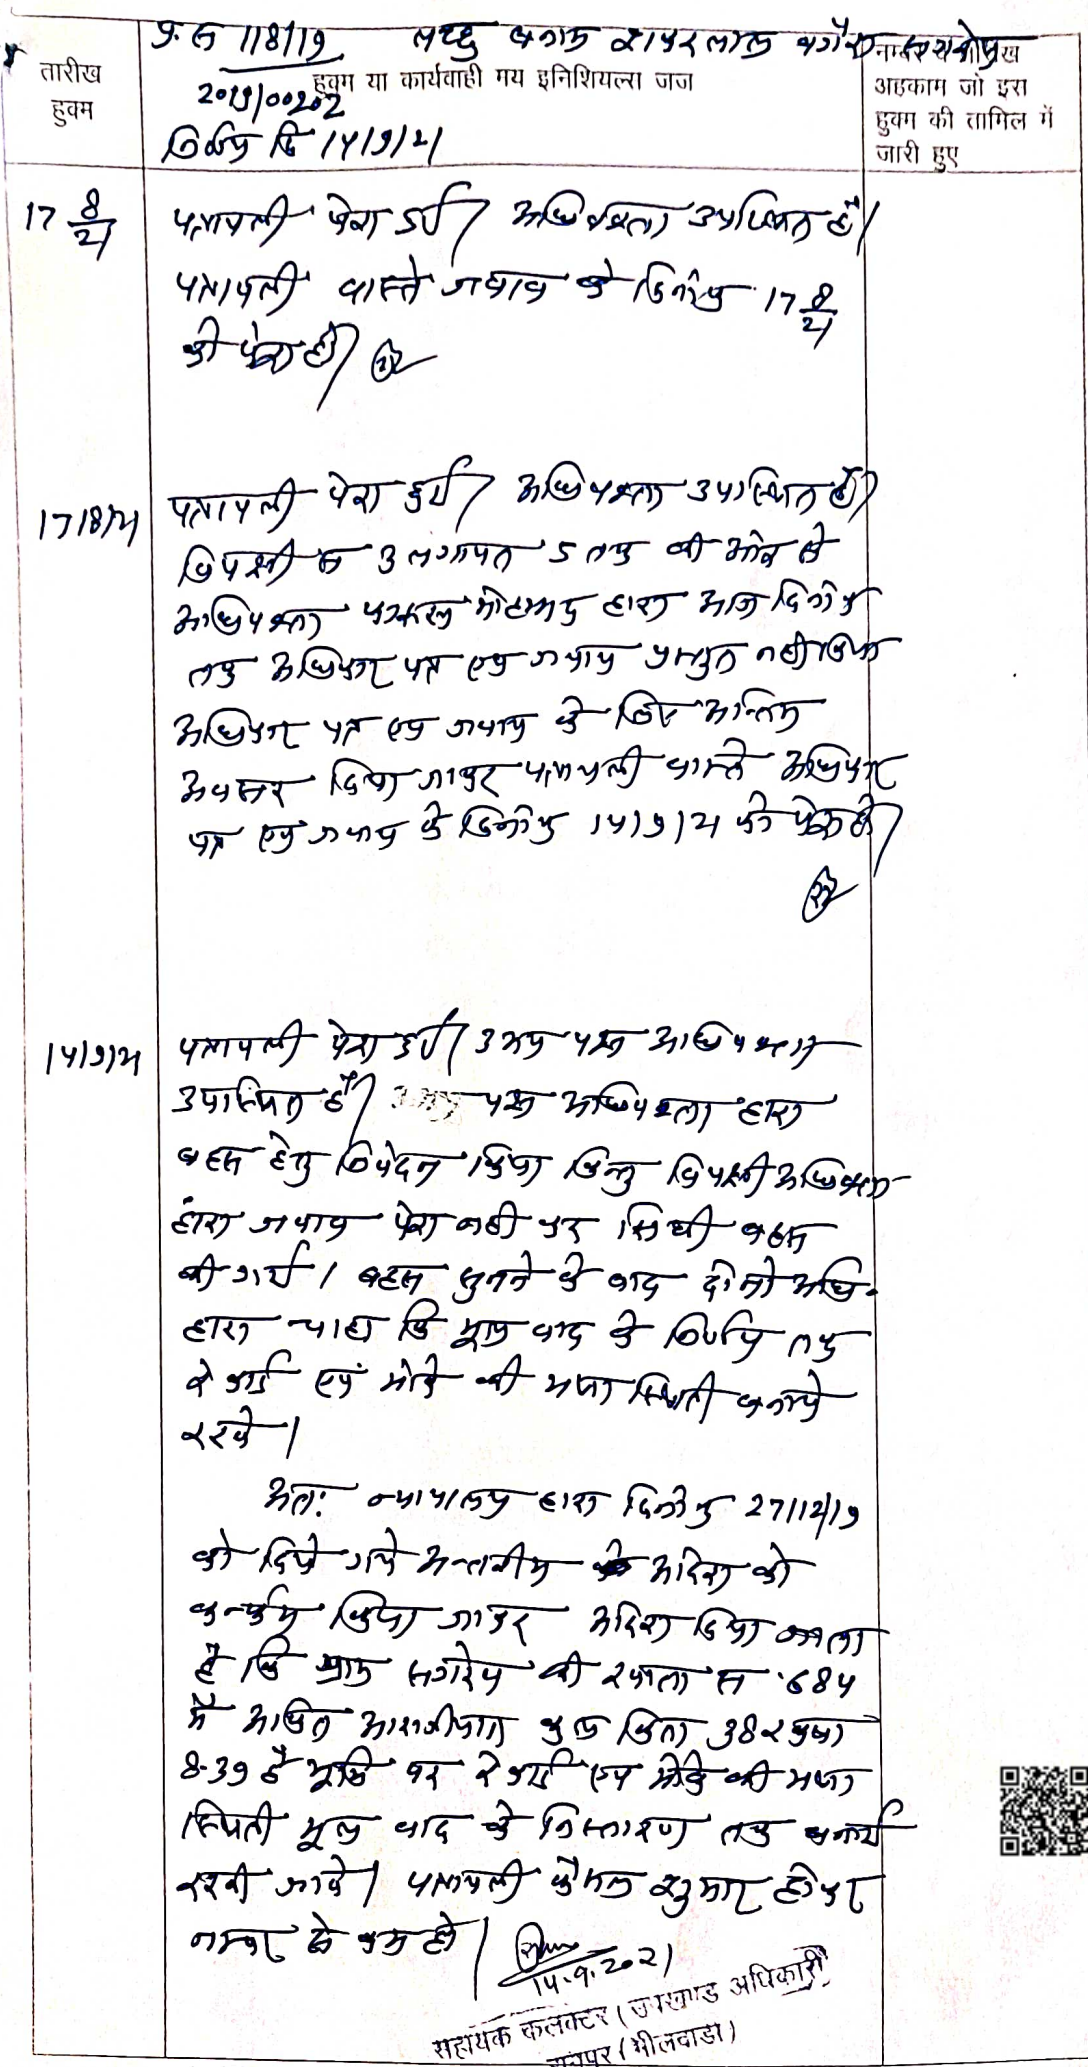 प्र.स 118/19 लच्छु बनाम शंकरलाल वगैरा
तारीख
हुक्म
हुक्म या कार्यवाही मय इनिशियल्स जज
2019/00202
निर्णय दि 14/9/21
अहकाम जो इस
हुक्म की तामिल में
जारी हुए
17 8/21
पत्रावली पेश हुई। अधिवक्ता उपस्थित है।
पत्रावली वास्ते जवाब के दिनांक 17 8/21
को पेश हो।
17/8/21
पत्रावली पेश हुई। अधिवक्ता उपस्थित है।
विपक्षी स 3 लगायत 5 तक की ओर से
अधिवक्ता मोहम्मद द्वारा आज दिनांक
तक अधिकार पत्र एवं जवाब प्रस्तुत नही किया
अधिकार पत्र एवं जवाब के लिए अन्तिम
अवसर दिया जाकर पत्रावली वास्ते अधिकार
पत्र एवं जवाब के दिनांक 14/9/21 को पेश हो।
14/9/21
पत्रावली पेश हुई। उभय पक्ष अधिवक्ता
उपस्थित है। उभय पक्ष अधिवक्ता द्वारा
बहस हेतु निवेदन किया किन्तु विपक्षी अधिवक्ता
द्वारा जवाब पेश नही कर सिधी बहस
की गई। बहस सुनने के बाद दोनो अधि.
द्वारा चाहा कि मूल वाद के निर्णय तक
रेकार्ड एवं मोके की यथा स्थिती बनाये
रखे।
अतः न्यायालय द्वारा दिनांक 27/12/19
को दिये गये अन्तरीम आदेश को
कन्फर्म किया जाकर आदेश दिया जाता
है कि ग्राम सगरेव की खाता स 684
मे अंकित आराजीयात कुल किता 38 रकबा
8.39 है भूमि पर रेकार्ड एवं मोके की यथा
स्थिती मूल वाद के निस्तारण तक बनाई
रखी जावे। पत्रावली फैसल शुमार होकर
नम्बर से कम हो।
14.9.2021
सहायक कलक्टर (उपखण्ड अधिकारी)
(भीलवाडा)